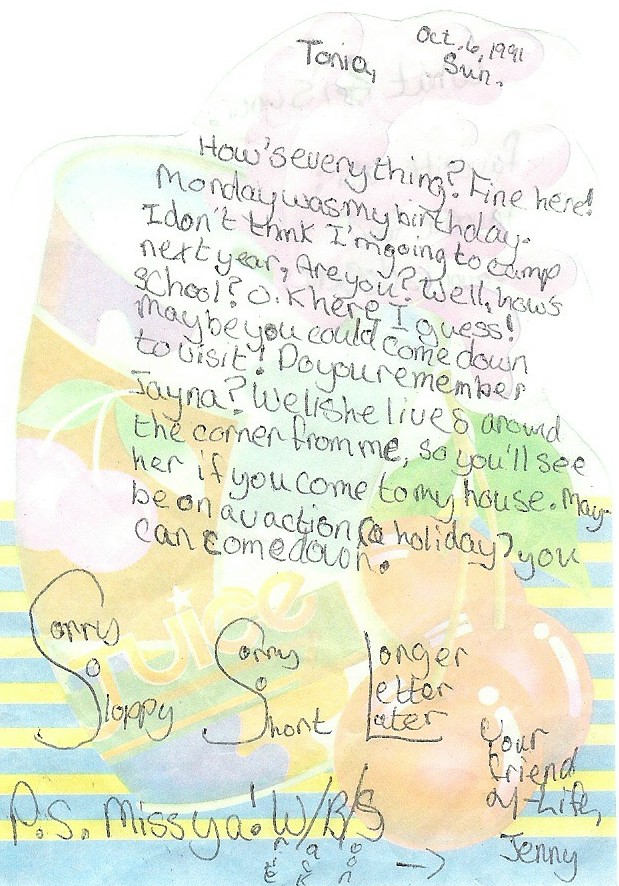 Oct. 6, 1991
Tonia, Sun.
How's everything? Fine here!
Monday was my birthday.
I don't think I'm going to camp
next year, Are you? Well, how's
school? O.K here I guess!
Maybe you could come down
to visit! Do you remember
Jayna? Well she lives around
the corner from me, so you'll see
her if you come to my house. May-
be on a vaction (a holiday) you
can come down.
Sorry Sorry Longer
So So Letter
Sloppy Short Later
Your
friend
4-Life,
Jenny
P.S. Miss ya! W/B/S
rite ack oon
→
Juice